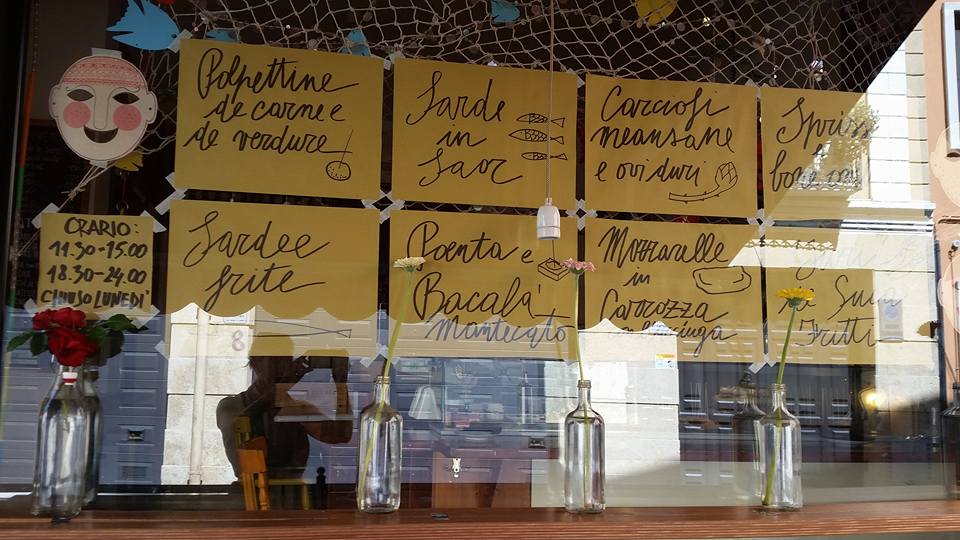 Polpettine
de carne e
de verdure
Sarde
in
Saor
Carciofi
meansane
e ovi duri
Spriss
e
ORARIO:
11.30-15.00
18.30-24.00
CHIUSO LUNEDI'
Sardee
frite
Poenta e
Bacalà
Mantecato
Mozzarelle
in
Carrozza
Fritti
8